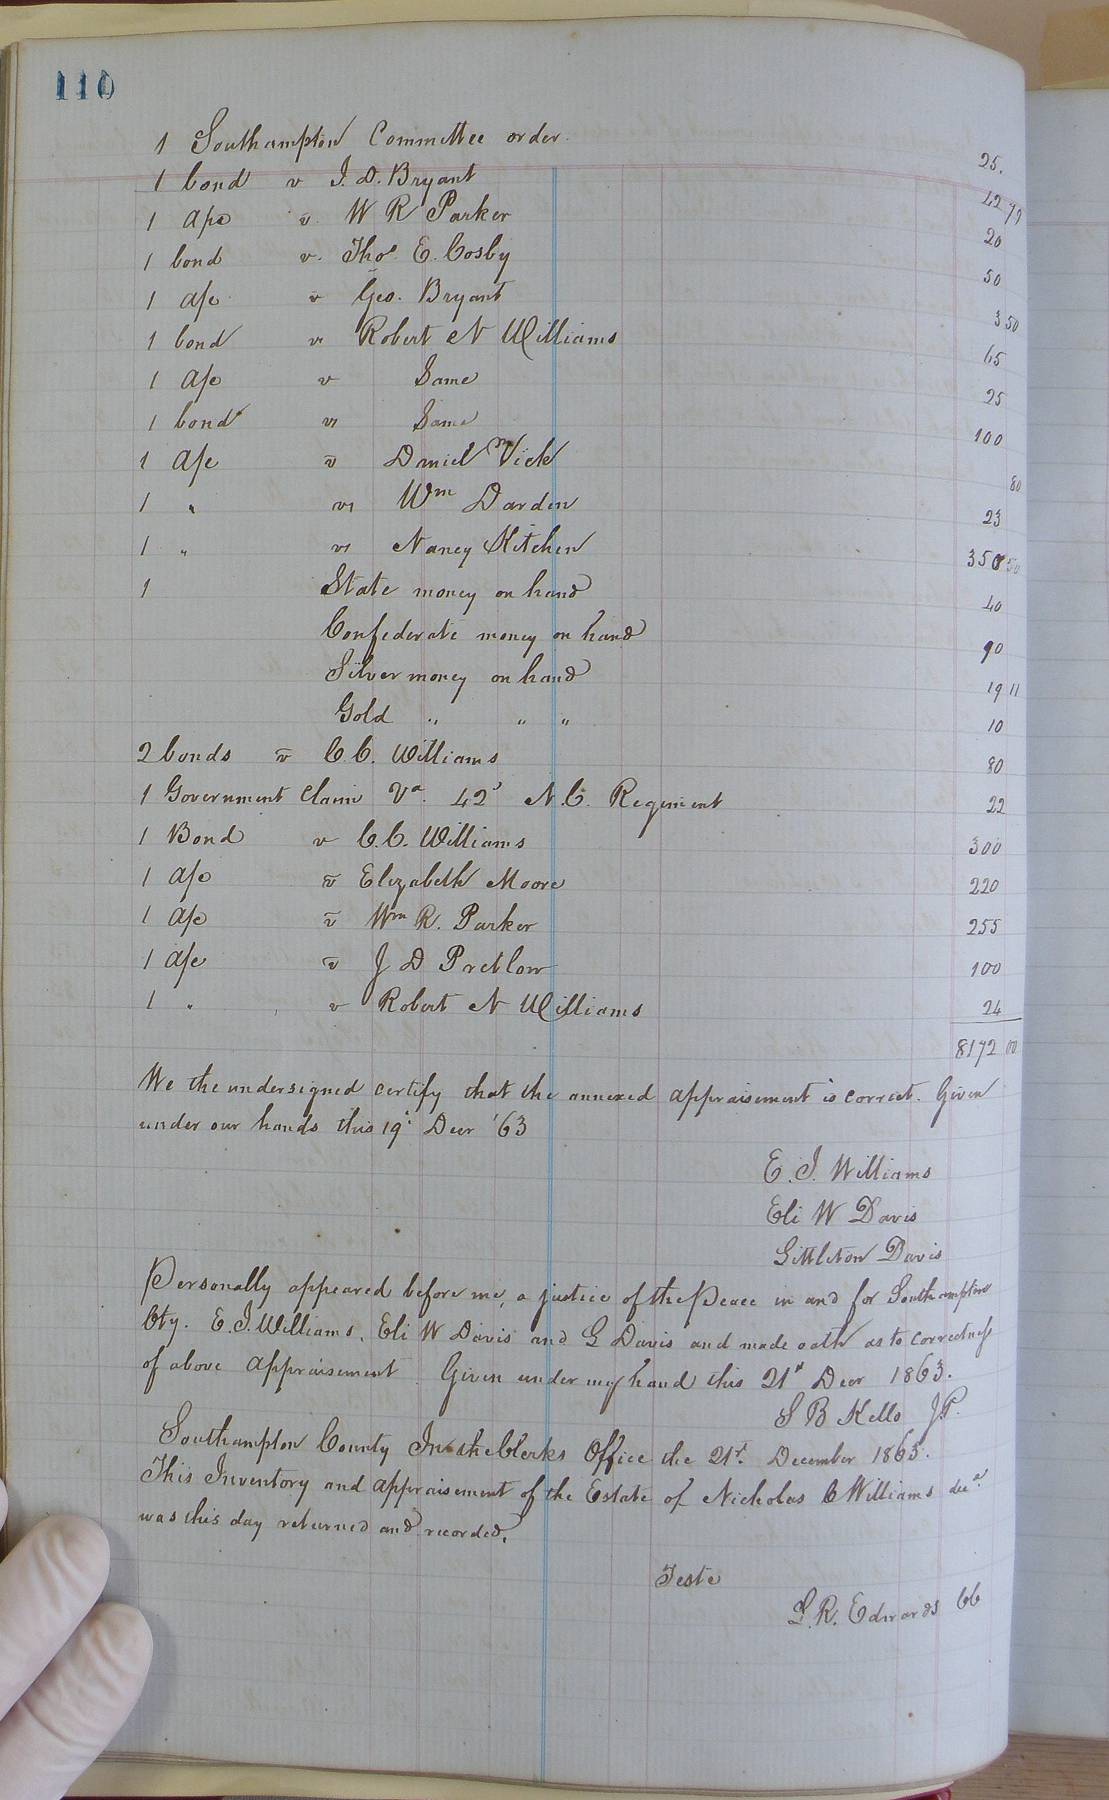 110
1 Southampton Committee order. 25.
1 bond v J. D. Bryant 42 79
1 a/c v W R Parker 20
1 bond v. Thos. E. Cosby 50
1 a/c v Geo. Bryant 3 50
1 bond vs Robert N Williams 65
1 a/c v Same 25
1 bond vs Same 100
1 a/c v Daniel Vick 80
1 " vs Wm Darden 23
1 " vs Nancy Kitchen 350 50
1 State money on hand 40
Confederate money on hand 90
Silver money on hand 19 11
Gold " " " 10
2 bonds v C. C. Williams 80
1 Government Claim Va. 42d N. C. Regiment 22
1 Bond v C. C. Williams 300
1 a/c v Elizabeth Moore 220
1 a/c v Wm R. Parker 255
1 a/c v J D Pretlow 100
1 " v Robert N Williams 24
8172 00
We the undersigned certify that the annexed appraisement is correct. Given
under our hands this 19th Decr '63
E. J. Williams
Eli W Davis
Littleton Davis
Personally appeared before me, a justice of the Peace in and for Southampton
Cty. E. J. Williams, Eli W Davis and L Davis and made oath as to correctness
of above appraisement. Given under my hand this 21st Decr 1863.
S B Kello J.P.
Southampton County In the Clerks Office the 21st. December 1863.
This Inventory and appraisement of the Estate of Nicholas C Williams decd
was this day returned and recorded.
Teste
L. R. Edwards CC